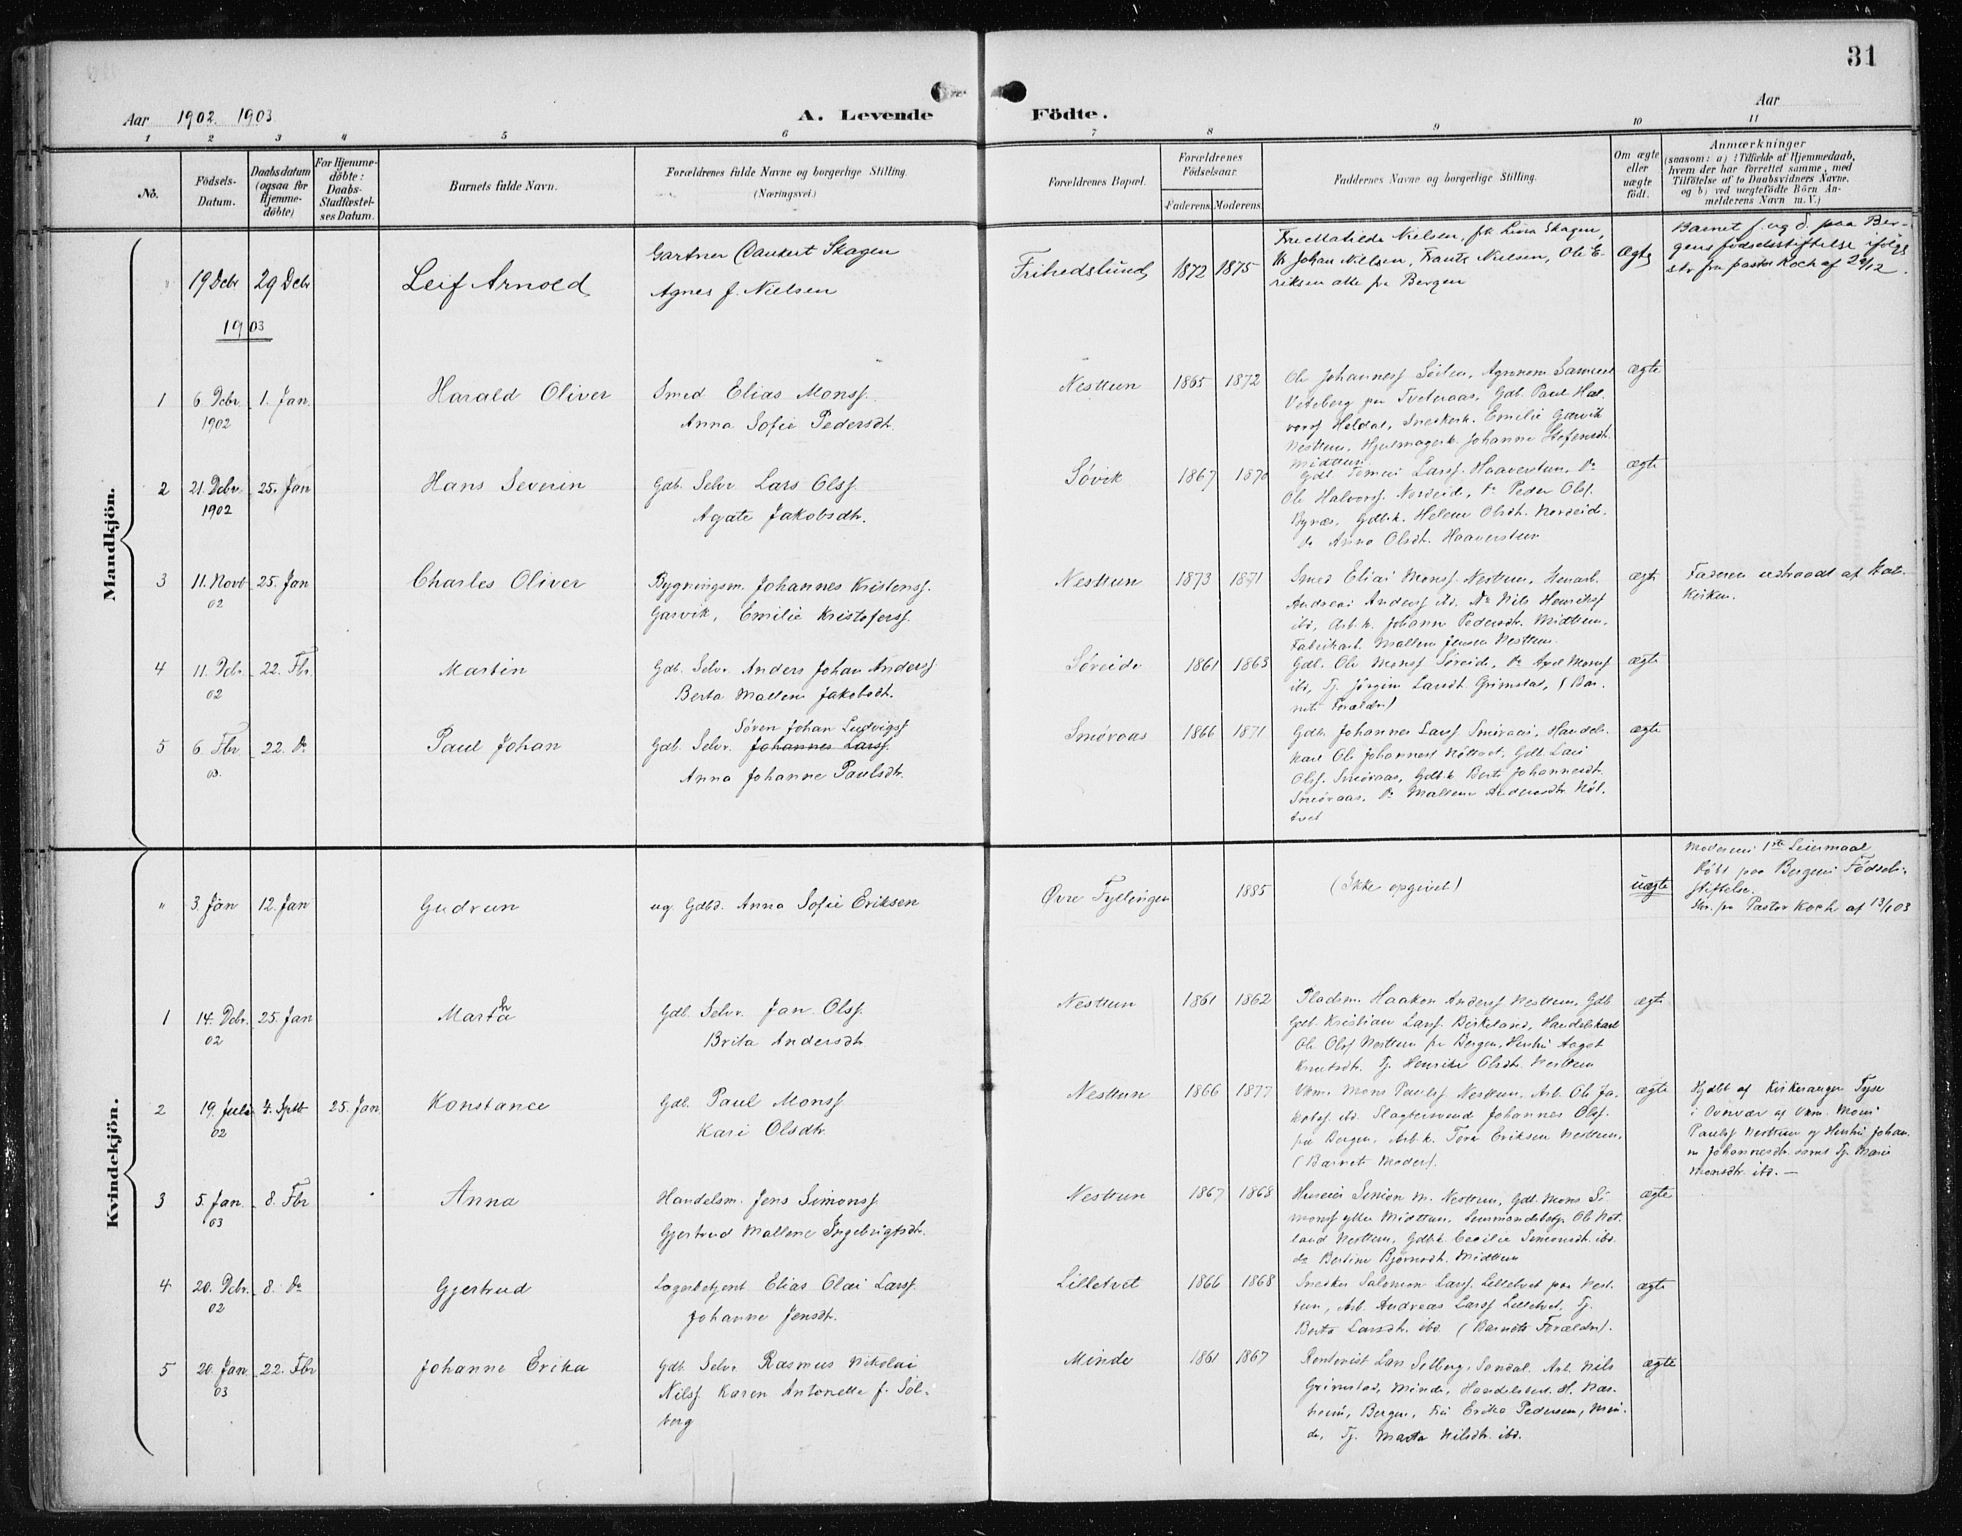 31
Aar 1902 1903
A. Levende Födte.
Aar
1 2 3 4 5 6 7 8 9 10 11
No.
Födsels-Datum.
Daabsdatum (ogsaa for Hjemme-döbte)
For Hjemme-döbte: Daabs-Stadfæstel-ses Datum.
Barnets fulde Navn.
Forældrenes fulde Navne og borgerlige Stilling. (Næringsvei.)
Forældrenes Bopæl.
Forældrenes Födselsaar.
Faderens. Moderens.
Faddernes Navne og borgerlige Stilling.
Om ægte eller uægte födt.
Anmærkninger
(saasom: a) i Tilfælde af Hjemmedaab, hvem der har forrettet samme, med Tilföielse af to Daabsvidners Navne, og b) ved uægtefödte Börn An-melderens Navn m. V.)
Mandkjön.
" 19 Debr 29 Debr Leif Arnold
Gartner Skagen
Agnes f. Nielsen
Frihedslund 1872 1875
Fru Matilde Nielsen, frk Lina Skagen,
Hr Johan Nielsen, Frantz Nielsen, Ole E-
riksen alle fra Bergen
ægte
Barnet f. og d. paa Ber-
gens fødselsstiftelse ifølge
skr. fra pastor Koch af 29/12.
1903
1 6. Debr. 1902 1. Jan. Harald Oliver
Smed Elias Monss.
Anna Sofie Pedersdt.
Nesttun 1865 1872
Ole Johanness. Agronom Samuel
Veteberg paa Tveteraas, Gdb. Paul Hal-
vorss Heldal, Snekkerk. Emilie Garvik
Nesttun, Hjulmagerk. Johanne
Midttun
ægte
2 21. Debr. 1902 25. Jan Hans Severin
Gdb. Selv. Lars Olss.
Agate Jakobsdtr.
Søvik 1867 1870
Larss. Haaverstun, Do
Ole Halvorss. Nordeid, Do Peder Olss.
Bynæs, Gdb.k. Helene Olsdt. Nordeid.
do Anna Olsdt. Haaverstun
ægte
3 11. Novb 02 25. Jan Charles Oliver
Bygningsm. Johannes Kristenss.
Garvik, Emilie Kristoferss.
Nesttun 1873 1871
Smed Elias Monss. Nesttun,
Andreas Anderss ibd. Do Nils Henrikss
ibd, Arb.k. Johanne Pedersdtr. Midttun,
Fabrikarb. Mallene Jensen Nesttun.
ægte
Faderen udtraadt af Stats-
kirken.
4 11. Debr 02 22. Fbr. Martin
Gdb. Selv. Anders Johan Anderss
Berta Mallene Jakobsdt.
Søreide 1861 1863
Gdb. Ole Monss Søreide, Do Axel Monss
ibd, Tj. Jørgine Larsdt. Grimstad, (Bar-
nets Forældre)
ægte
5 6. Fbr 03. 22. Do Paul Johan
Søren Johan Ludvigss
Gdb. Selv. Johannes Larss.
Anna Johanne Paulsdtr.
Smøraas 1866 1871
Gdb. Johannes Larss Smøraas, Handels-
karl Ole Johanness Nøttvet, Gdb. Lars
Olss. Smøraas, Gdb.k. Berte Johannesdt.
Smøraas, Do Mallene Andersdtr Nøt-
tvet
ægte
Kvindekjön.
" 3. Jan 12. Jan Gudrun
ug. Gdbd. Anna Sofie Eriksen
Øvre Fyllingen 1885
(Ikke opgivet)
uægte
Moderens 1ste Leiermaal
Døbt paa Bergens Fødsels-
stiftelse.
Skr. fra Pastor Koch af 13/1 03
1 14. Debr. 02 25. Jan Martha
Gdb. Selv. Jan Olss.
Brita Andersdt.
Nesttun 1861 1862
Pladsm. Haakon Anderss Nesttun, Gdb
Gdb. Kristian Larss. Birkeland, Handelskarl
Ole Olss Nesttun fra Bergen, Hustru Aagot
Knutsdt. Tj. Henrikke Olsdt. Nesttun
ægte
2 19. Juli 02 7. Sptb 25. Jan. Konstance
Gdb. Paul Monss
Kari Olsdtr.
Nesttun 1866 1877
Vkm. Mons Paulss Nesttun, Arb. Ole Ja-
kobss ibd. Slagtersvend Johannes Olss.
fra Bergen, Arb.k. Tora Eriksen Nesttun,
(Barnets Moder).
ægte
Hjdbt af Kirkesanger Tyse
i Overvær af Vkm. Mons
Paulss Nesttun og Hustru Johan-
ne Johannesdt. samt Tj. Maris
Monsdtr. ibd. —
3 5. Jan 03 8. Fbr Anna
Handelsm. Jens Simonss
Gjertrud Mallene Ingebrigtsdt.
Nesttun 1867 1868
Huseier Simon M. Nesttun, Gdb. Mons Si-
monss ytre Midttun, Lensmandsbetj. Ole Nat-
land Nesttun, Gdb.k. Cecilie Simonsdt. ibd.
do Bertine Bjørnsdt. Midttun
ægte
4 20. Debr. 02 8. Do Gjertrud
Lagerbetjent Elias Olai Larss.
Johanne Jensdt.
Lilletvet 1866 1868
Snekker Salomon Larss. Lilletvet paa Nest-
tun, Arb. Andreas Larss Lilletvet, Tj.
Berta Larsdt. ibd. (Barnets Forældre).
ægte
5 20. Jan 03 22. Fbr Johanne Erika
Gdb. Selv. Rasmus Nikolai
Nilss. Karen Antonette f. Sol-
berg
Minde 1861 1867
Lars Selberg, Sandal. Arb. Nils
Grimstad, Minde, Handelsbest. H. Næs-
heim, Bergen, Fru Erika Pedersen, Min-
de, Tj. Marta Nilsdtr. ibd.
ægte